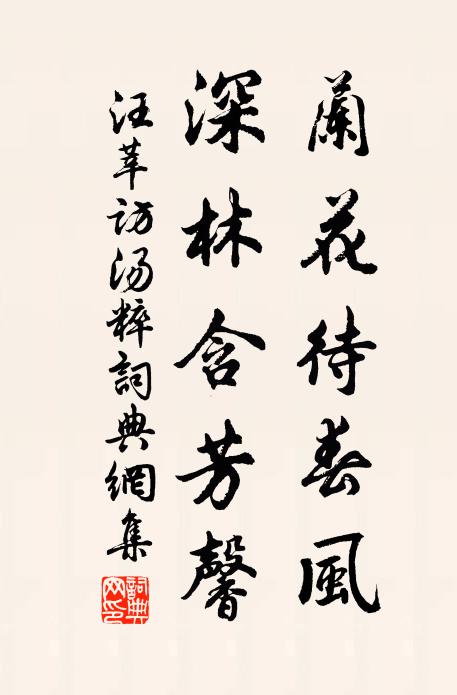 蘭花待春風
深林含芳馨
汪莘訪湯粹詞典網集
詞典网印